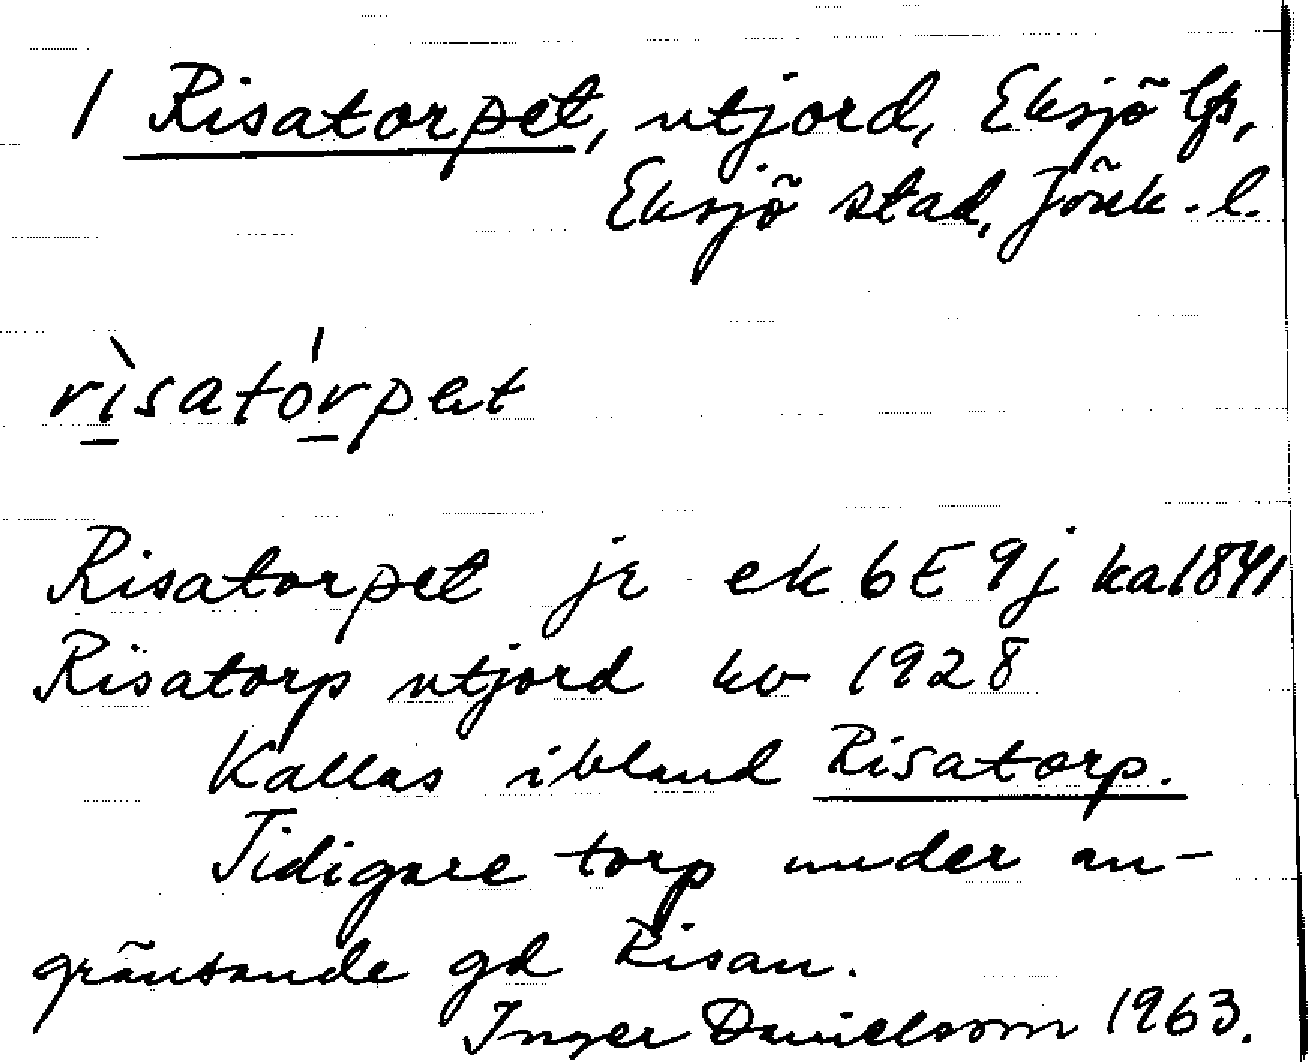 1 Risatorpet, utjord, Eksjö lfs,
Eksjö stad, Jönk. l.
rìsatórpet
Risatorpet je ek 6E9j ka 1841
Risatorp utjord kv 1928
Kallas ibland Risatorp.
Tidigare torp under an-
gränsande gd Risan.
Inger Danielsson 1963.